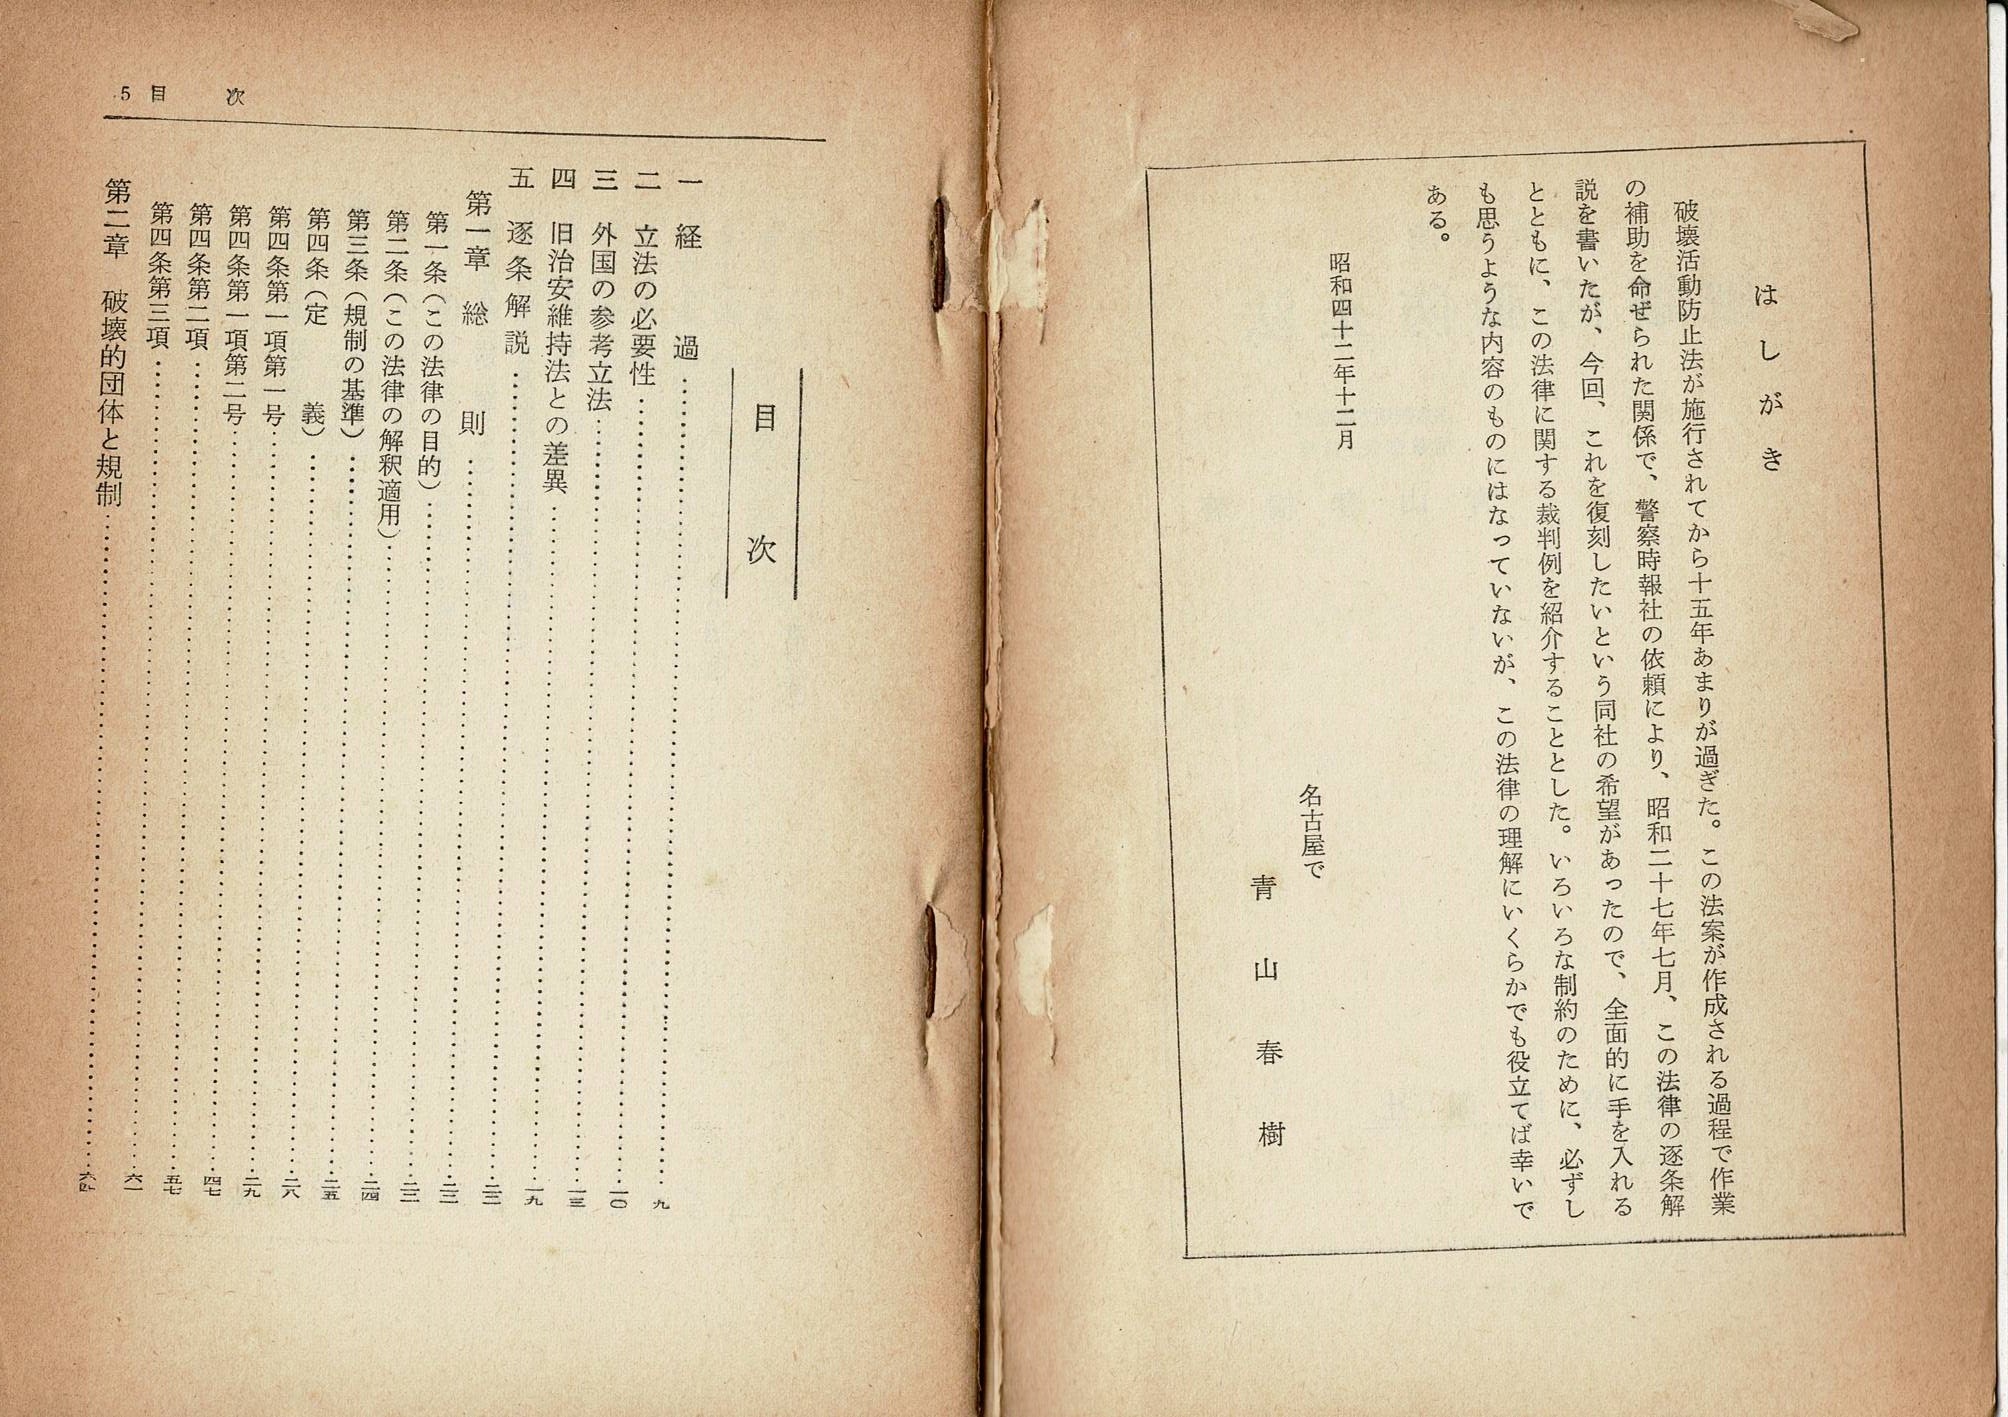 はしがき
破壊活動防止法が施行されてから十五年あまりが過ぎた。この法案が作成される過程で作業
の補助を命ぜられた関係で、警察時報社の依頼により、昭和二十七年七月、この法律の逐条解
説を書いたが、今回、これを復刻したいという同社の希望があったので、全面的に手を入れる
とともに、この法律に関する裁判例を紹介することとした。いろいろな制約のために、必ずし
も思うような内容のものにはなっていないが、この法律の理解にいくらかでも役立てば幸いで
ある。
昭和四十二年十二月
名古屋で
青山春樹
5 目 次
目 次
一 経 過……九
二 立法の必要性……一〇
三 外国の参考立法……一三
四 旧治安維持法との差異……一九
五 逐条解説……二三
第一章 総 則……二二
第一条(この法律の目的)……二二
第二条(この法律の解釈適用)……二四
第三条(規制の基準)……二五
第四条(定 義)……二八
第四条第一項第一号……二九
第四条第一項第二号……四七
第四条第二項……五七
第四条第三項……六一
第二章 破壊的団体と規制……六四